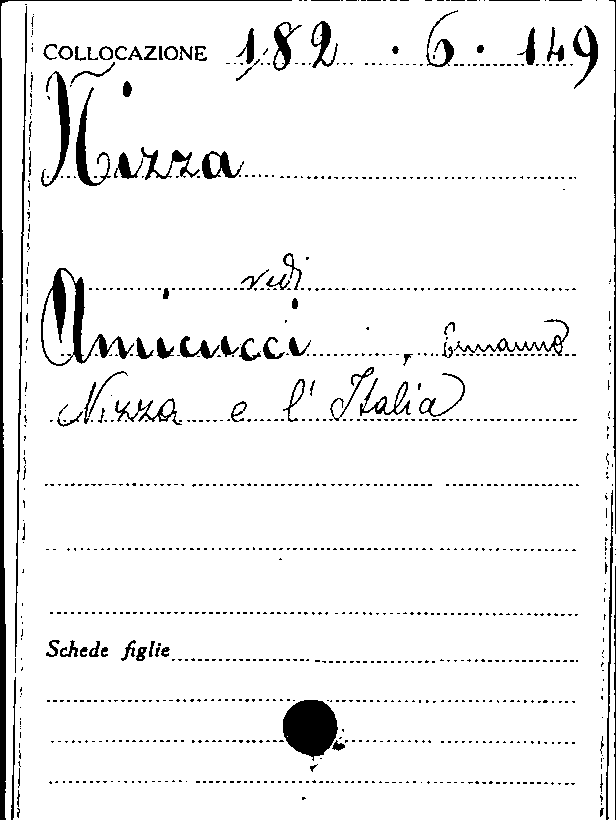 COLLOCAZIONE 182 . 6 . 149
Nizza
vedi
Amicucci , Ermanno
Nizza e l'Italia
Schede figlie